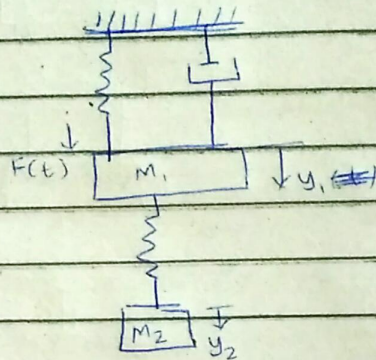 F(t) M₁ y₁
M₂ y₂